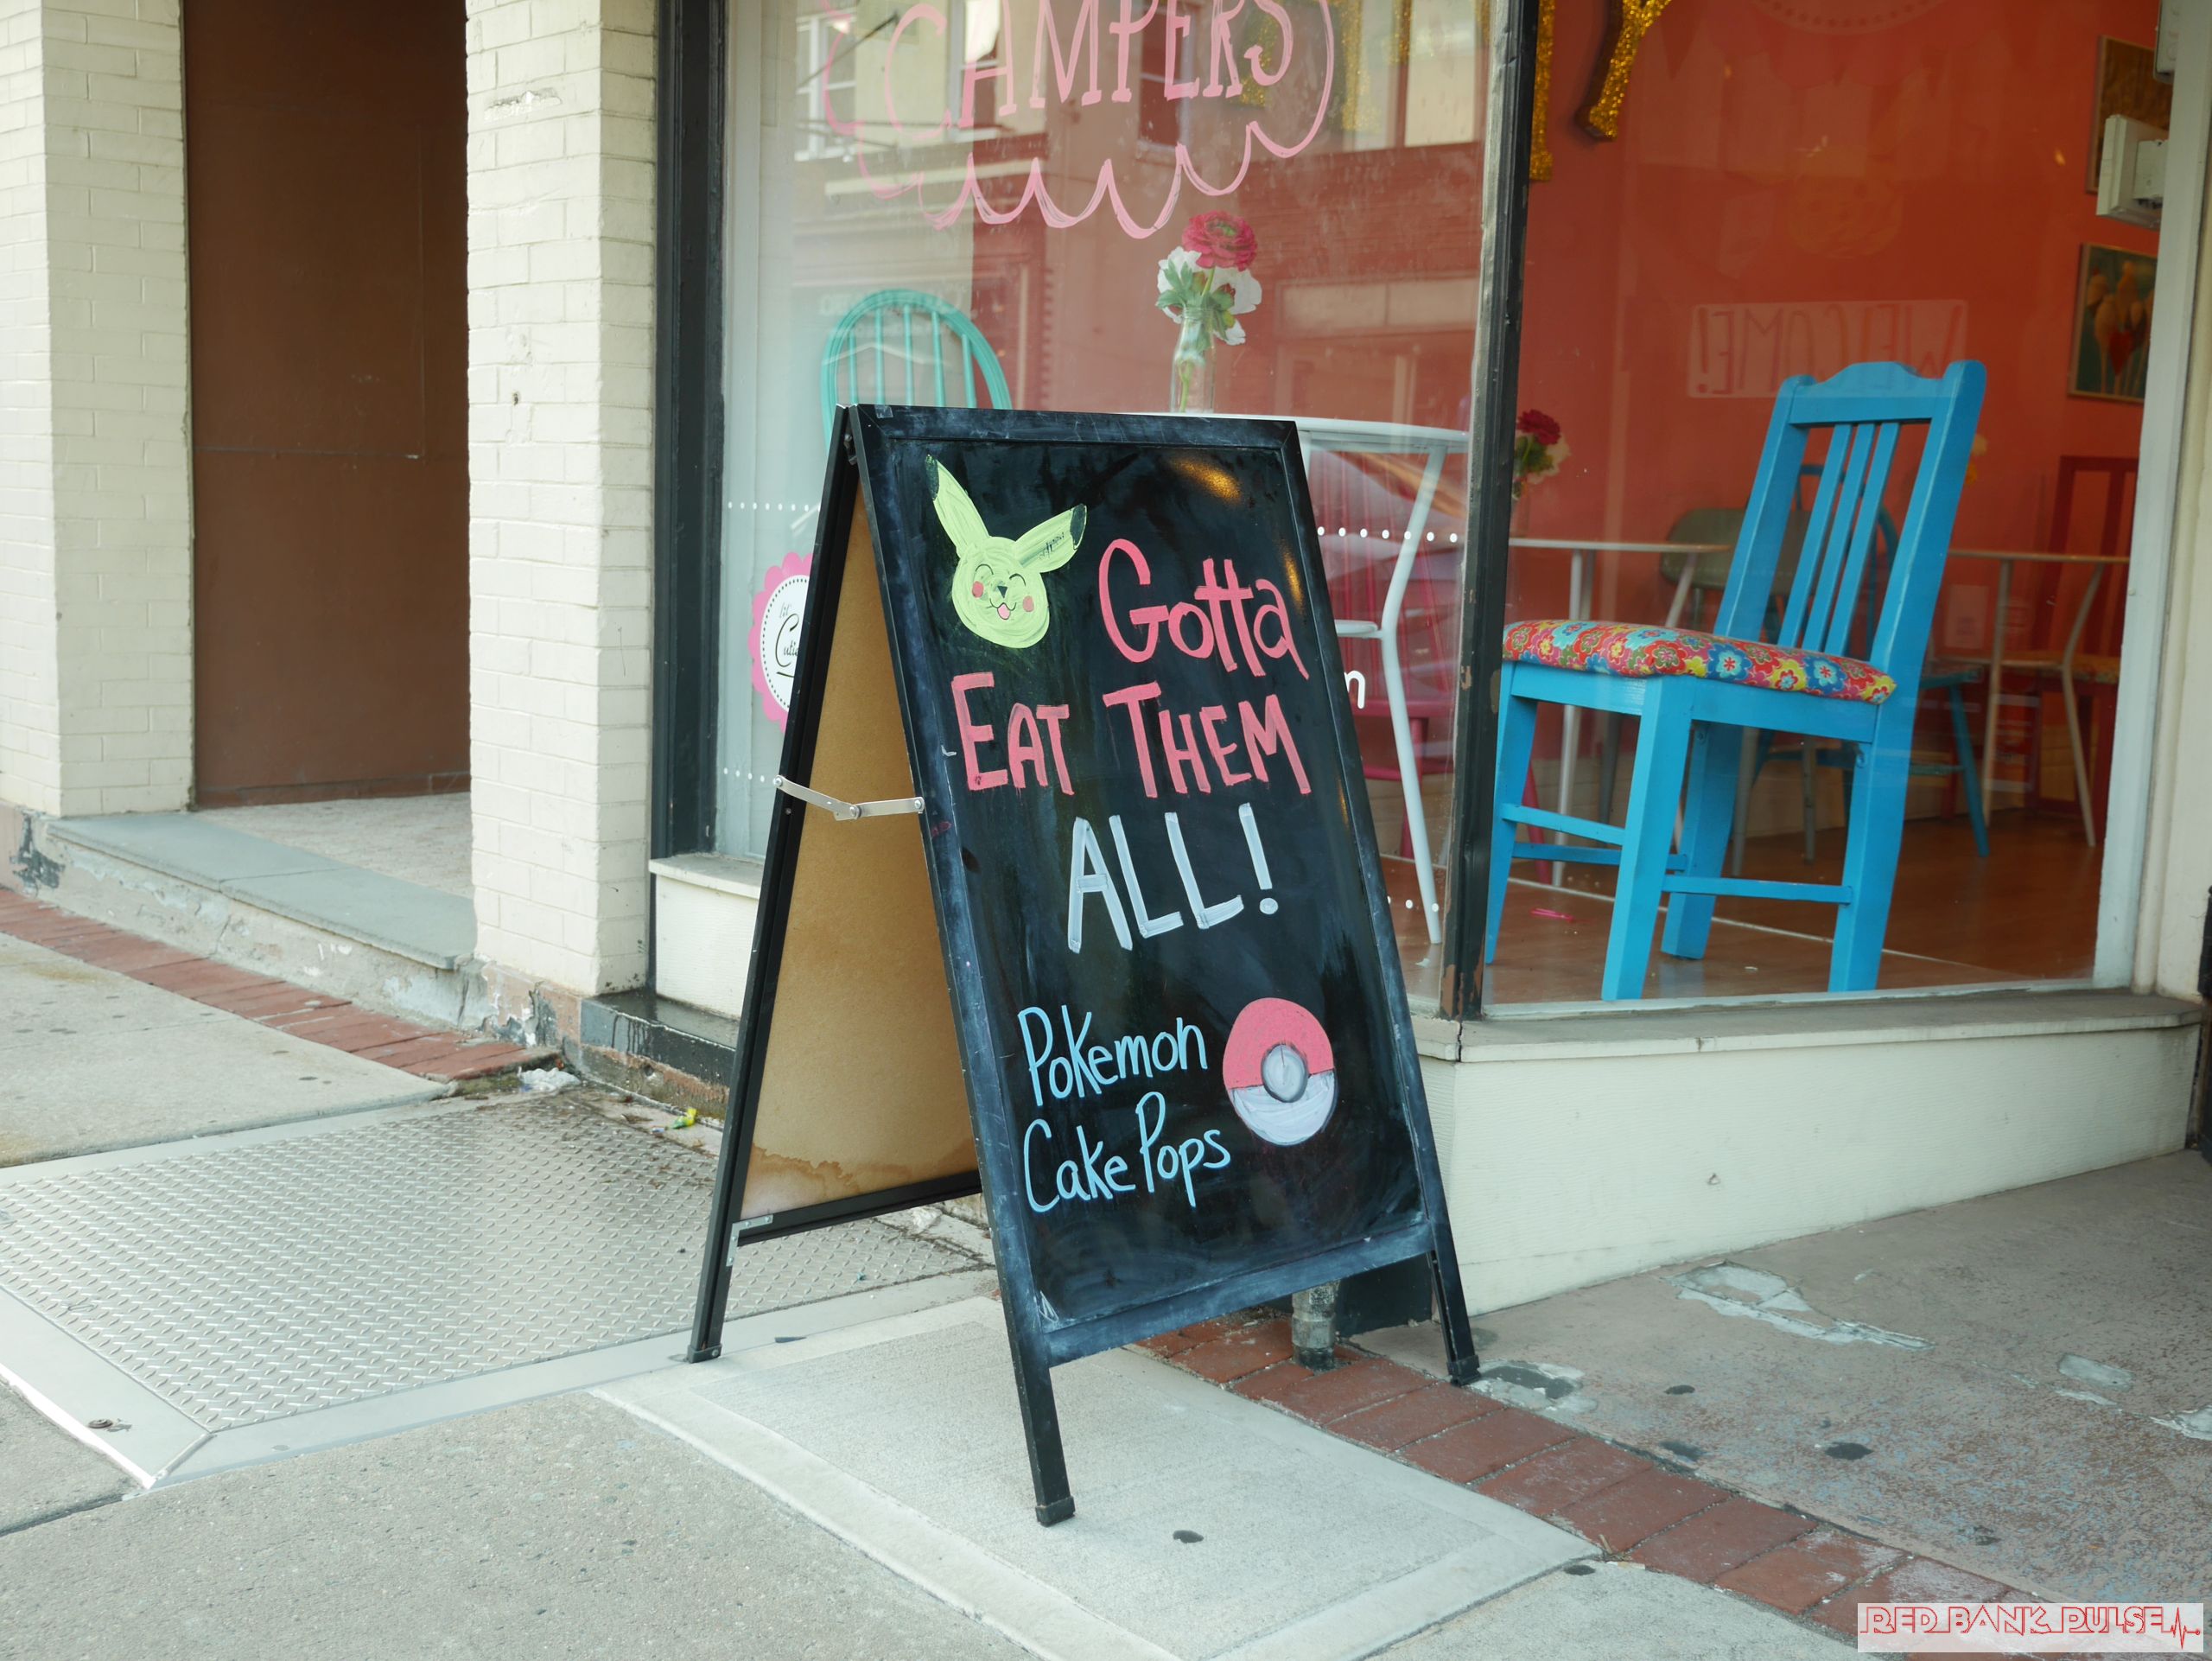 CAMPERS
WELCOME!
Gotta
EAT THEM
ALL!
Pokemon
Cake Pops
lil'
RED BANK PULSE